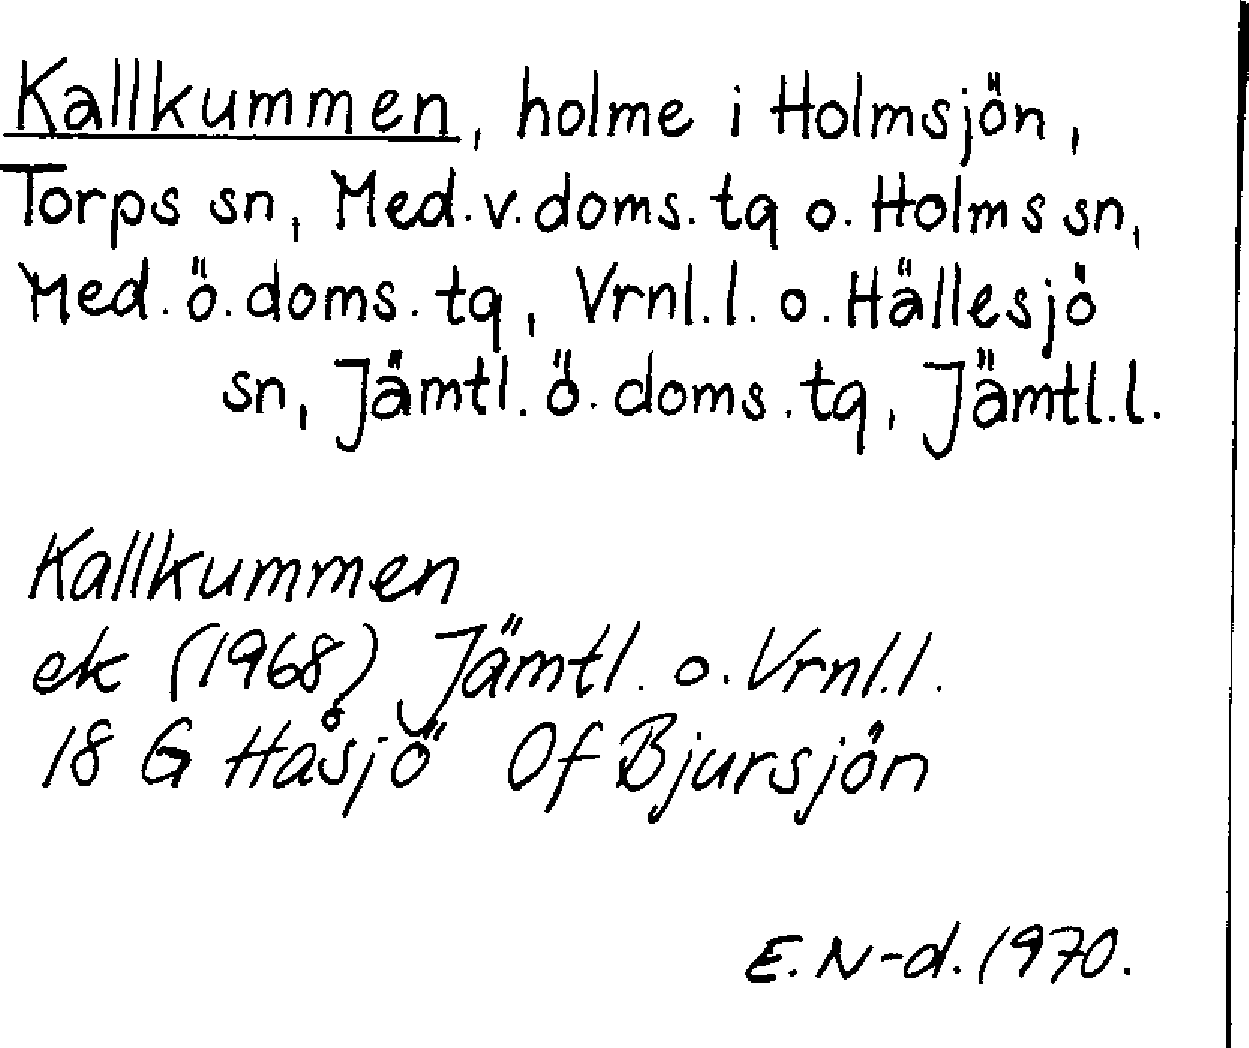 Kallkummen, holme i Holmsjön,
Torps sn, Med.v.doms.tq o. Holms sn,
Med.ö.doms.tq, Vrnl.l. o. Hällesjö
sn, Jämtl.ö.doms.tq, Jämtl.l.
Kallkummen
ek (1968) Jämtl. o. Vrnl.l.
18 G Håsjö Of Bjursjön
E.N-d. 1970.